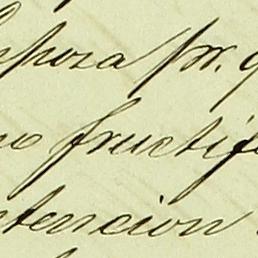 spoza pr. q
no fructife
tencion